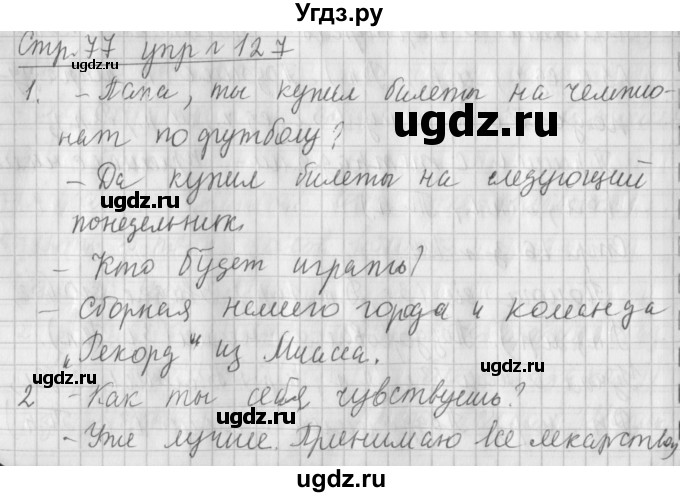 Угdз.ру
Стр. 77 упр г 127
1. – Папа, ты купил билеты на чемпио-
нат по футболу?
– Да купил билеты на следующий
понедельник.
– Кто будет играть?
– Сборная нашего города и команда
„Рекорд" из Миасса.
2 – Как ты себя чувствуешь?
– Уже лучше. Принимаю все лекарства,
ugdz.ru
ugdz.ru
ugdz.ru
ugdz.ru
ugdz.ru
ugdz.ru
ugdz.ru
ugdz.ru
ugdz.ru
ugdz.ru